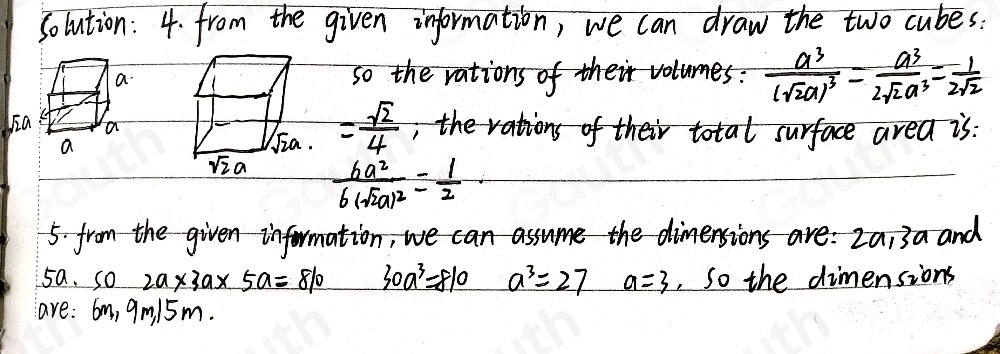 Solution: 4. from the given information, we can draw the two cubes:
a.
√2a
a
a
√2a.
√2a
so the rations of their volumes: a³/(√2a)³ = a³/2√2a³ = 1/2√2
= √2/4 ; the rations of their total surface area is:
6a²/6(√2a)² = 1/2 .
5. from the given information, we can assume the dimensions are: 2a, 3a and
5a. so 2a×3a×5a=810 30a³=810 a³=27 a=3, so the dimensions
are: 6m, 9m, 15m.